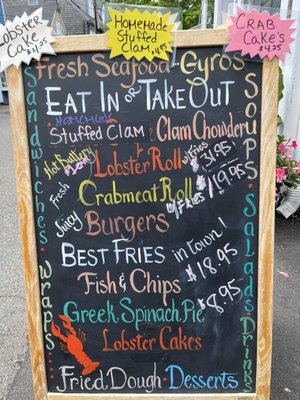 Lobster
Cake $4.25
Homemade
Stuffed
Clam $4.95
CRAB
CAKE'S
$4.25
Fresh Seafood - Gyros
EAT IN OR TAKE OUT
HOMEMADE
Stuffed Clam & Clam Chowder
Hot Buttery
Fresh
Lobster Roll w/Fries $31.95
Crabmeat Roll w/Fries $19.95
Juicy Burgers
BEST FRIES in town!
Fish & Chips $18.95
Greek Spinach Pie $8.95
Lobster Cakes
Fried Dough - Desserts
Sandwiches • Wraps
Soups • Salads • Drinks